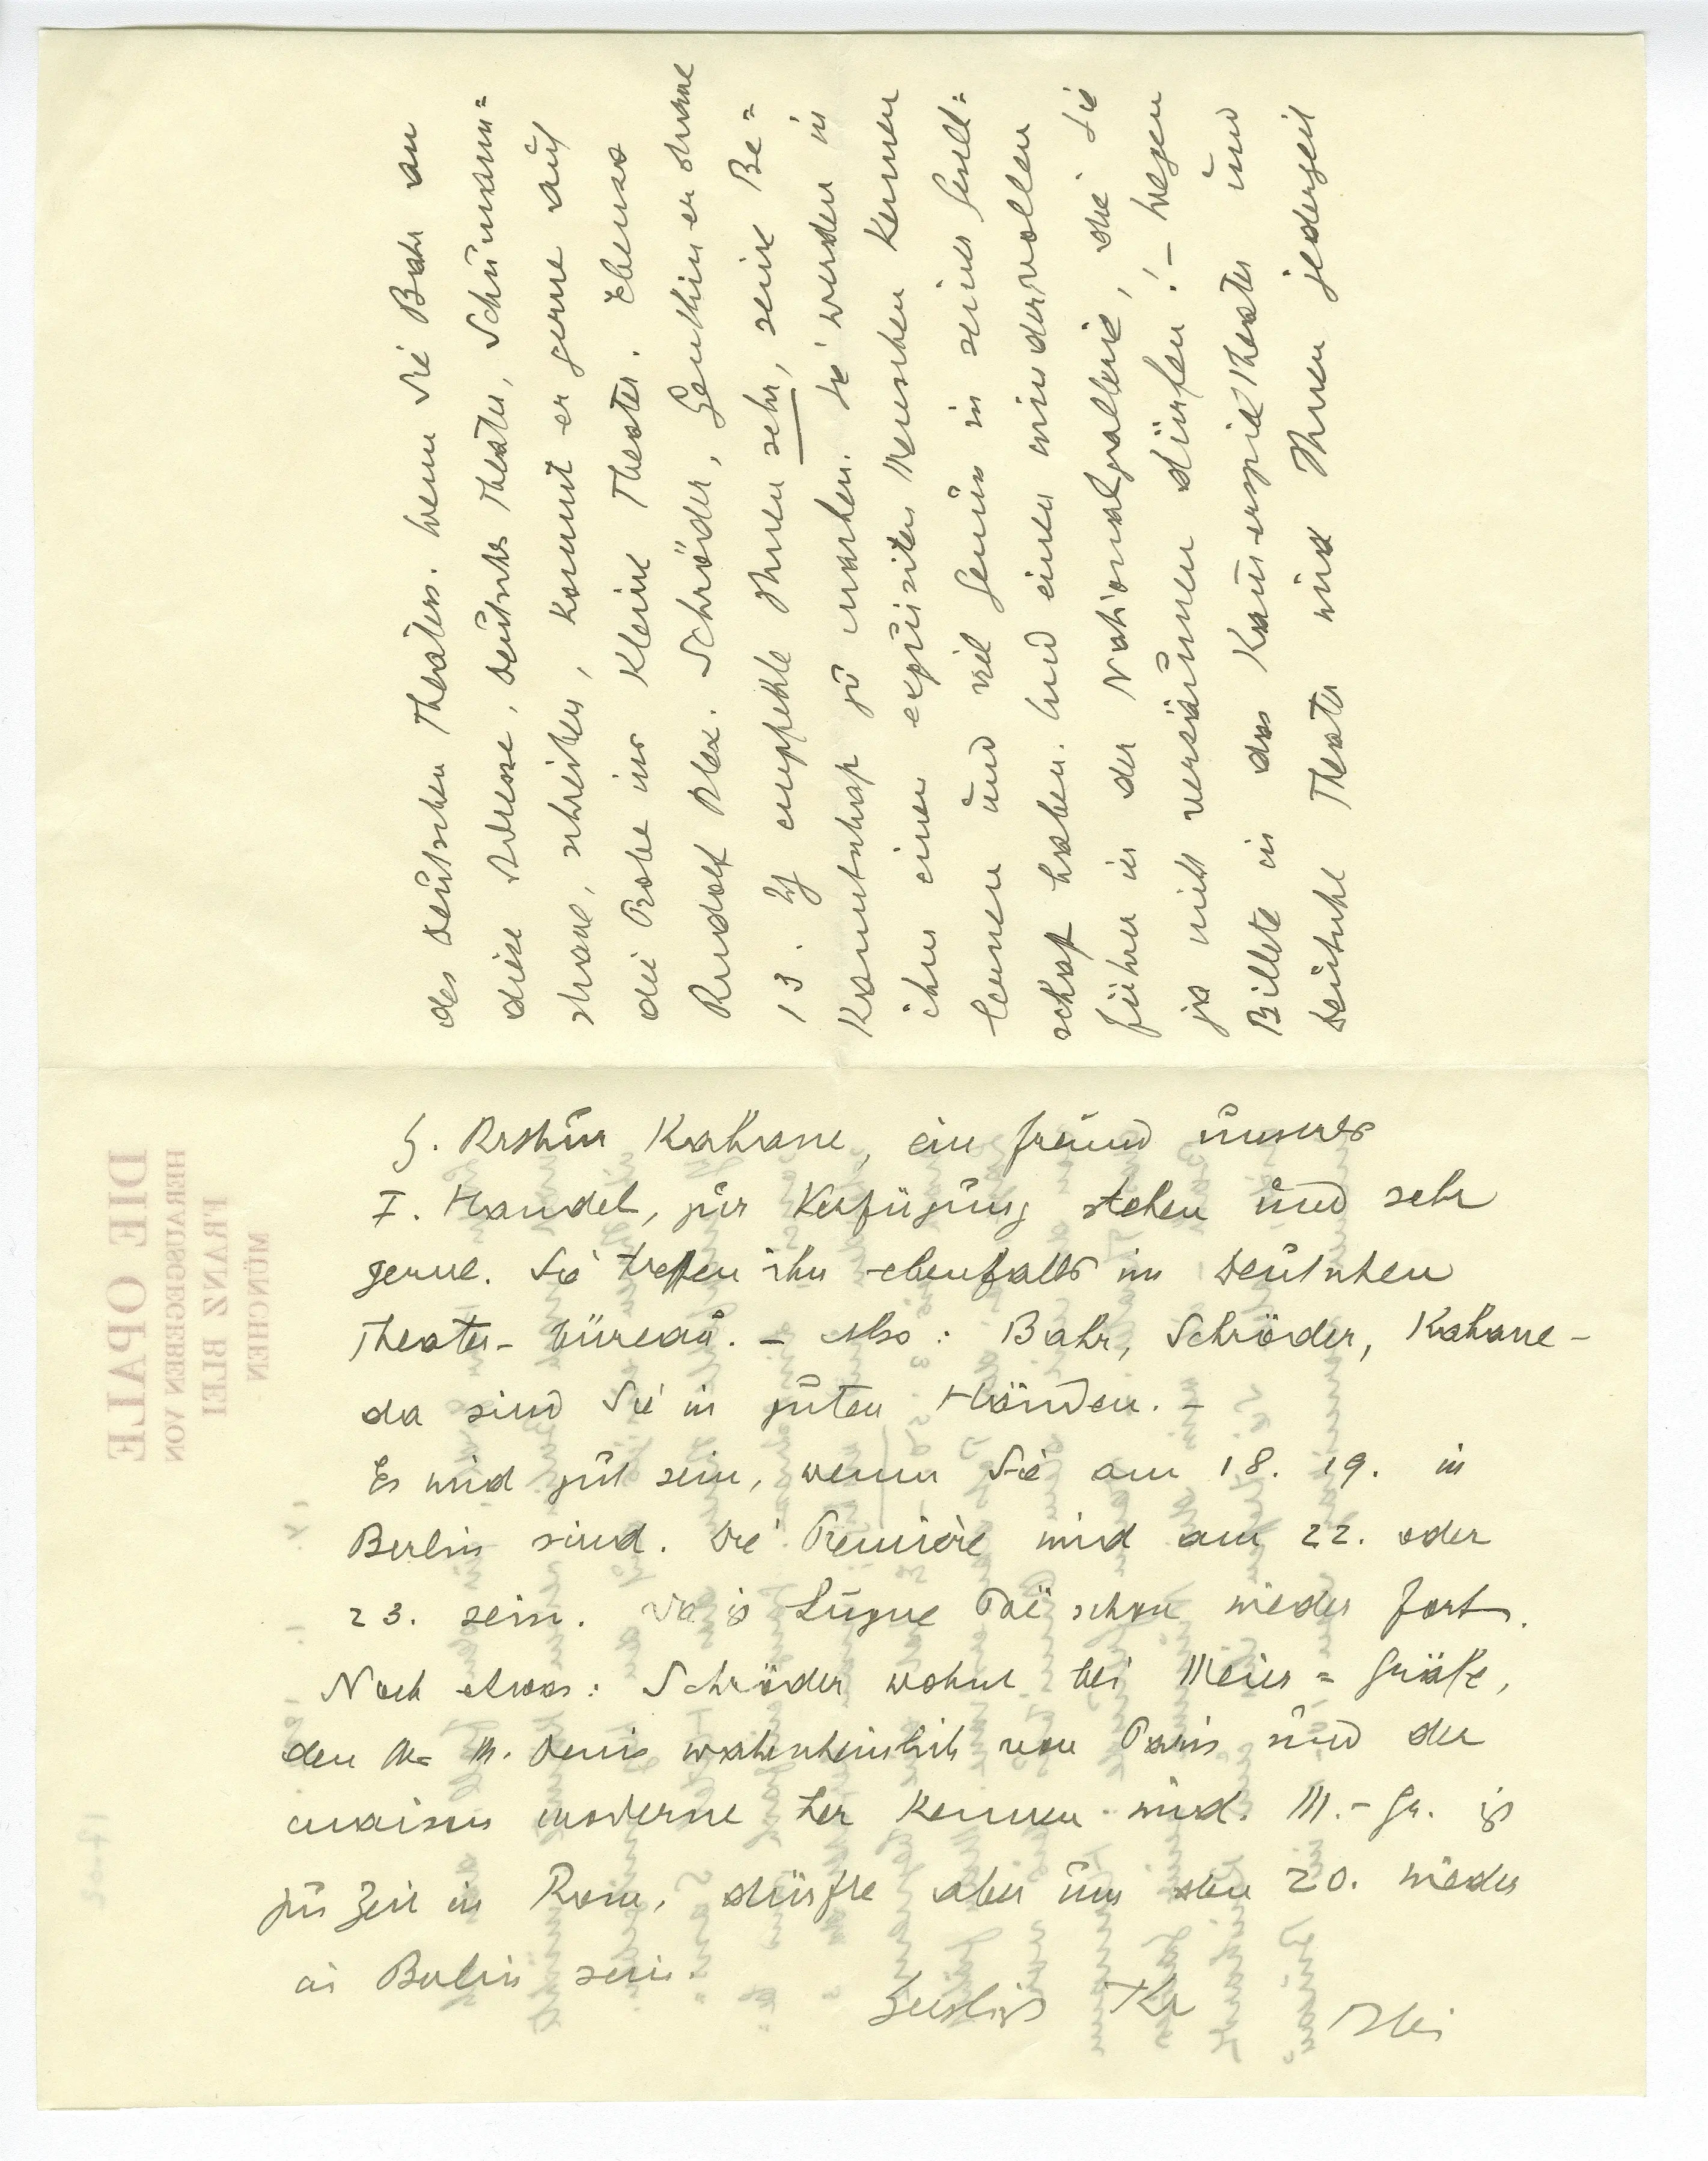 des Deutschen Theaters. Wenn Sie Bahr an
diese Adresse, Deutsches Theater, Schumann=
strasse, schreiben, kommt er gerne auf
die Probe ins Kleine Theater. Ebenso
Rudolf Alex. Schröder, Genthinerstrasse
13. Ich empfehle Ihnen sehr, seine Be=
kanntschaft zu machen. Sie werden in
ihm einen exquisiten Menschen kennen
lernen und viel Genuss in seiner Gesell=
schaft haben. Und einen wundervollen
Führer in der Nationalgallerie, die Sie
ja nicht versäumen dürfen! – Wegen
Billete in das Kammerspieltheater und
Deutsche Theater wird Ihnen jederzeit
H. Arthur Kahane, ein Freund unseres
F. Handel, zur Verfügung stehen und sehr
gerne. Sie treffen ihn ebenfalls im Deutschen
Theater-bureau. – Also: Bahr, Schröder, Kahane –
da sind Sie in guten Händen. –
Es wird gut sein, wenn Sie am 18. 19. in
Berlin sind. Die Première wird am 22. oder
23. sein. Da ist Lugné Poë schon wieder fort.
Noch etwas: Schröder wohnt bei Meier=Gräfe,
den M. Denis wahrscheinlich von Paris und der
maison moderne her kennen wird. M.-Gr. ist
zur Zeit in Rom, dürfte aber um den 20. wieder
in Berlin sein.
Herzlichst Ihr Blei
DIE OPALE
HERAUSGEGEBEN VON
FRANZ BLEI
MÜNCHEN